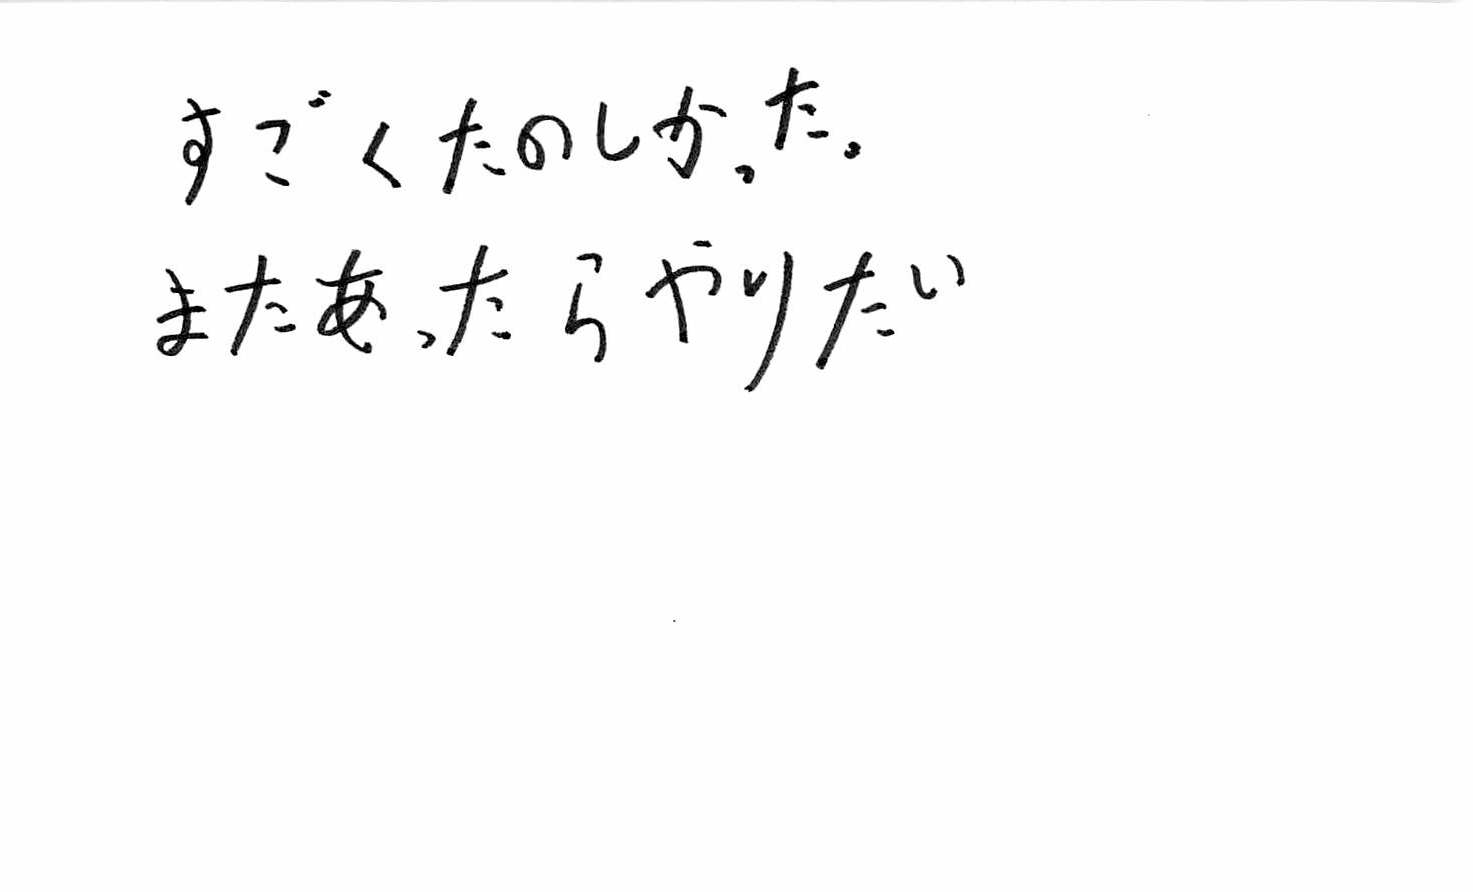 すごくたのしかった。
またあったらやりたい